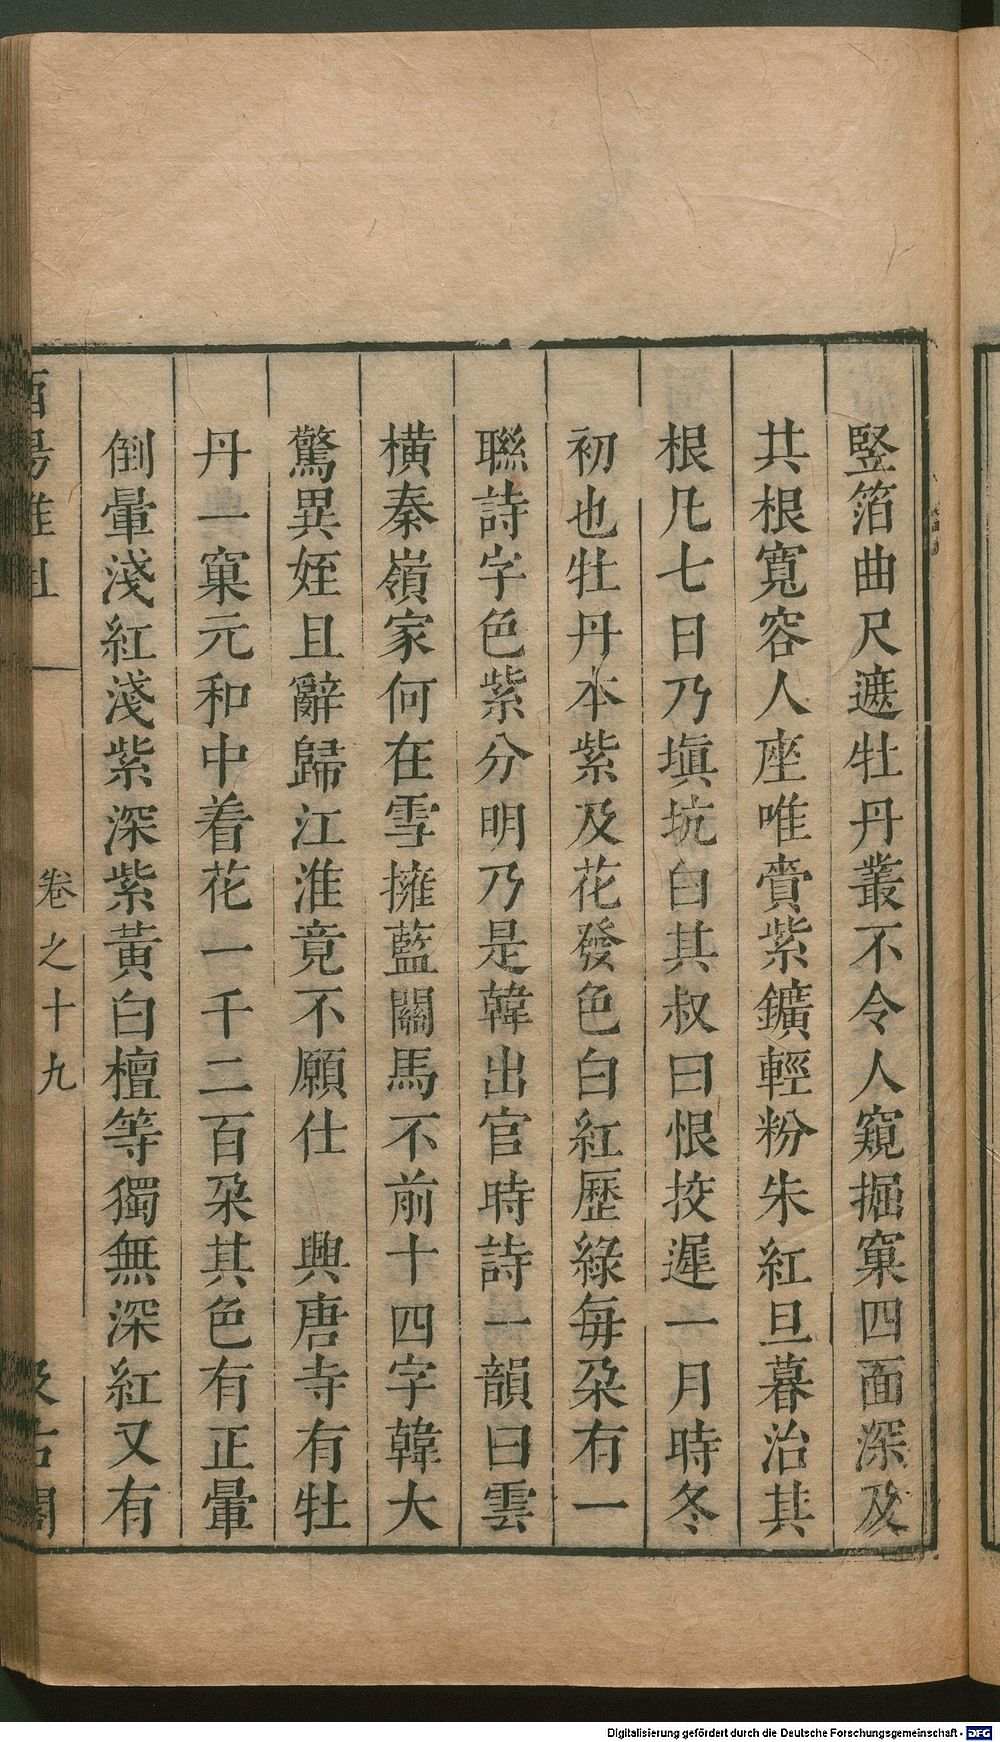 竪箔曲尺遮牡丹叢不令人窺掘窠四面深及
其根寬容人座唯賫紫鑛輕粉朱紅旦暮治其
根凡七日乃塡坑白其叔曰恨挍遲一月時冬
初也牡丹本紫及花發色白紅歷綠每朶有一
聯詩字色紫分明乃是韓出官時詩一韻曰雲
橫秦嶺家何在雪擁藍關馬不前十四字韓大
驚異姪且辭歸江淮竟不願仕　興唐寺有牡
丹一窠元和中着花一千二百朶其色有正暈
倒暈淺紅淺紫深紫黃白檀等獨無深紅又有
酉陽雜俎　卷之十九　汲古閣
Digitalisierung gefördert durch die Deutsche Forschungsgemeinschaft - DFG